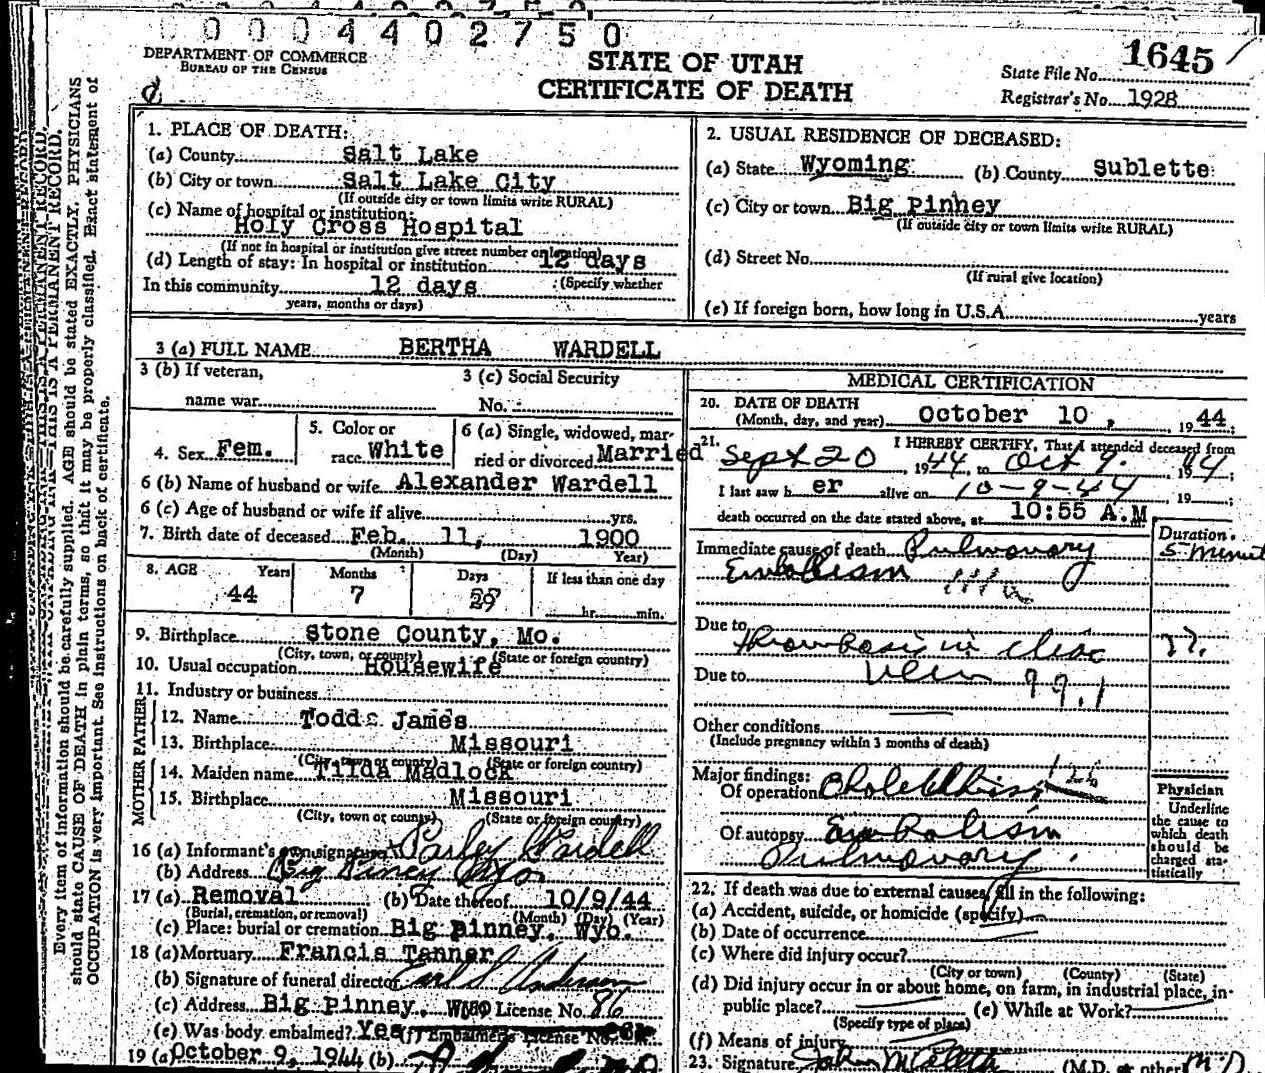 0 0 0 4 4 0 2 7 5 0
DEPARTMENT OF COMMERCE
BUREAU OF THE CENSUS
STATE OF UTAH
CERTIFICATE OF DEATH
State File No. 1645
Registrar's No. 1928
1. PLACE OF DEATH:
(a) County Salt Lake
(b) City or town Salt Lake City
(If outside city or town limits write RURAL)
(c) Name of hospital or institution:
Holy Cross Hospital
(If not in hospital or institution give street number or location)
(d) Length of stay: In hospital or institution 12 days
In this community 12 days (Specify whether
years, months or days)
2. USUAL RESIDENCE OF DECEASED:
(a) State Wyoming (b) County Sublette
(c) City or town Big Pinney
(If outside city or town limits write RURAL)
(d) Street No.
(If rural give location)
(e) If foreign born, how long in U.S.A. years
3 (a) FULL NAME BERTHA WARDELL
3 (b) If veteran, 3 (c) Social Security
name war No.
4. Sex Fem. 5. Color or race White 6 (a) Single, widowed, married or divorced Married
6 (b) Name of husband or wife Alexander Wardell
6 (c) Age of husband or wife if alive yrs.
7. Birth date of deceased Feb. 11, 1900
(Month) (Day) Year)
8. AGE Years Months Days If less than one day
44 7 29 hr. min.
9. Birthplace Stone County, Mo.
(City, town, or county) (State or foreign country)
10. Usual occupation Housewife
11. Industry or business
FATHER
12. Name Todd James
13. Birthplace Missouri
(City, town or county) (State or foreign country)
MOTHER
14. Maiden name Tilda Madlock
15. Birthplace Missouri
(City, town or county) (State or foreign country)
16 (a) Informant's own signature Parley Wardell
(b) Address Big Piney Wyo
17 (a) Removal (b) Date thereof 10/9/44
(Burial, cremation, or removal) (Month) (Day) (Year)
(c) Place: burial or cremation Big pinney, Wyo.
18 (a) Mortuary Francis Tanner
(b) Signature of funeral director Earl S Anderson
(c) Address Big Pinney, Wyo License No. 86
(e) Was body embalmed? Yes (f) Embalmer's License No.
19 (a) October 9, 1944 (b)
MEDICAL CERTIFICATION
20. DATE OF DEATH
(Month, day, and year) October 10, 1944;
21. I HEREBY CERTIFY, That I attended deceased from
Sept 20, 1944, to Oct 9. 1944;
I last saw her alive on 10-9-44, 19 ;
death occurred on the date stated above, at 10:55 A.M
Duration
Immediate cause of death Pulmonary 5-Minut
Embolism 111a
Due to
Thrombosis in iliac ??
Due to Vein 99.1
Other conditions
(Include pregnancy within 3 months of death)
Major findings: 126
Of operation
Of autopsy Embolism
Pulmonary.
Physician
Underline
the cause to
which death
should be
charged sta-
tistically
22. If death was due to external causes, fill in the following:
(a) Accident, suicide, or homicide (specify)
(b) Date of occurrence
(c) Where did injury occur?
(City or town) (County) (State)
(d) Did injury occur in or about home, on farm, in industrial place, in-
public place? (e) While at Work?
(Specify type of place)
(f) Means of injury
23. Signature John (M.D. or other) M.D.
THIS IS A PERMANENT RECORD.
Every item of information should be carefully supplied. AGE should be stated EXACTLY. PHYSICIANS
should state CAUSE OF DEATH in plain terms, so that it may be properly classified. Exact statement of
OCCUPATION is very important. See instructions on back of certificate.